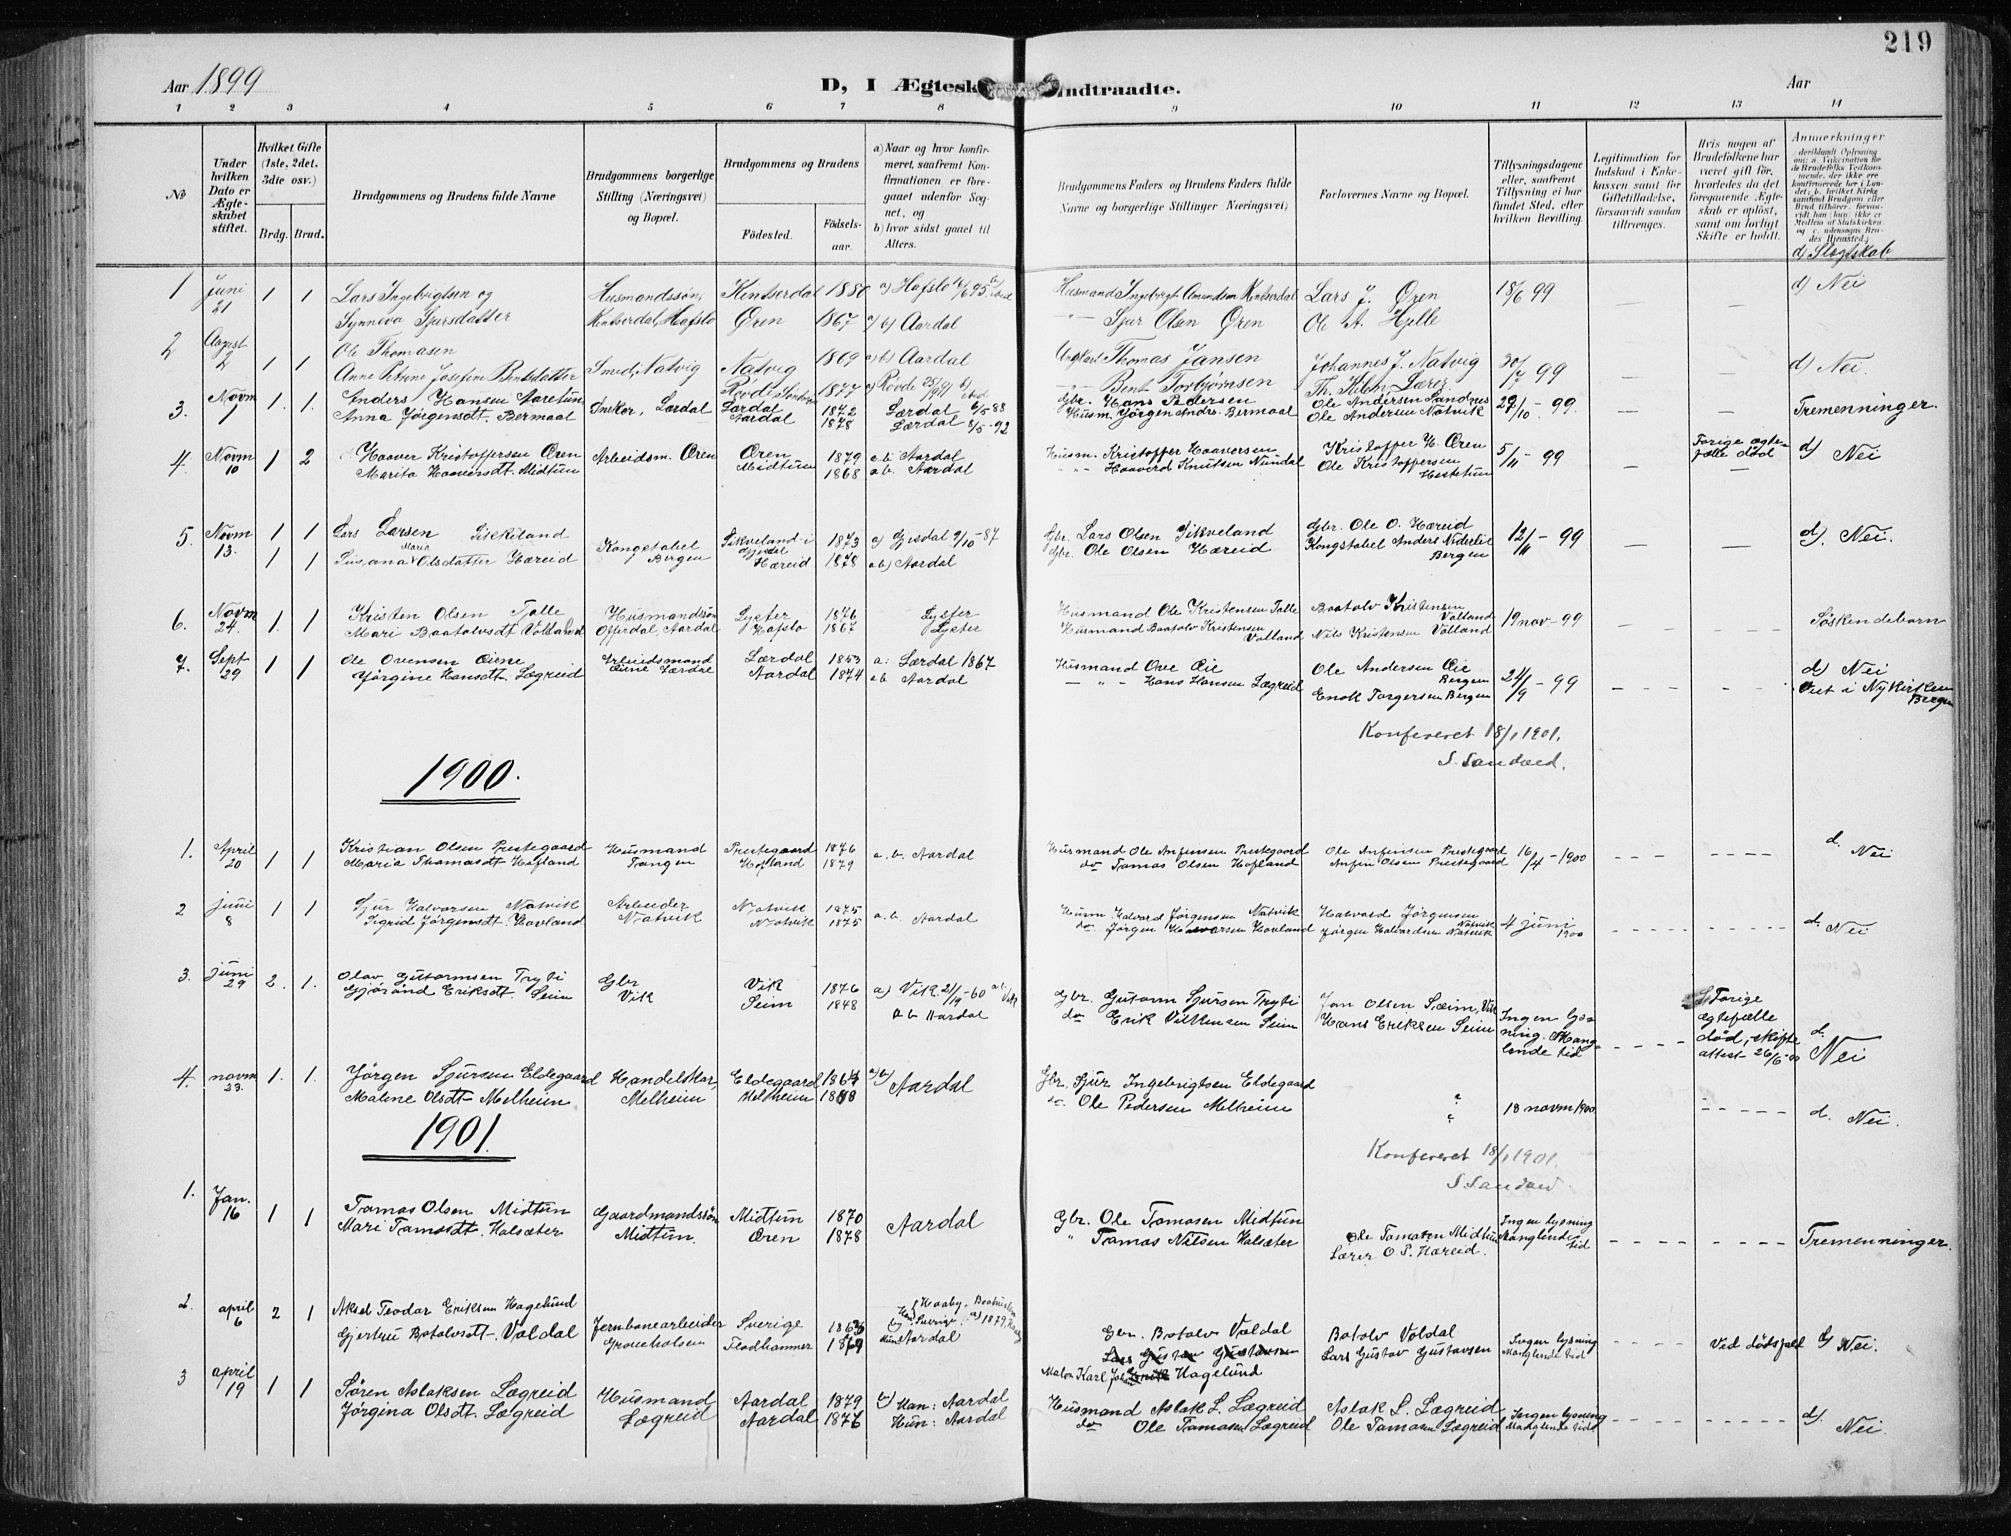 219
Aar 1899
D, I Ægtesk
Indtraadte.
Aar
1 2 3 4 5 6 7 8 9 10 11 12 13 14
No
Under hvilken Dato er Ægteskabet stiftet.
Hvilket Gifte (1ste, 2det, 3die osv.)
Brdg. Brud.
Brudgommens og Brudens fulde Navne
Brudgommens borgerlige Stilling (Næringsvei) og Bopæl.
Brudgommens og Brudens
Fødested.
Fødselsaar.
a) Naar og hvor konfirmeret, saafremt Konfirmationen er foregaaet udenfor Sognet, og
b) hvor sidst gaaet til Alters.
Brudgommens Faders og Brudens Faders fulde Navne og borgerlige Stillinger Næringsvei)
Forlovernes Navne og Bopæl.
Tillysningsdagene eller, saafremt Tillysning ei har fundet Sted, efter hvilken Bevilling.
Legitimation for Indskud i Enkekassen samt for Giftetilladelse, forsaavidt saadan tiltrænges.
Hvis nogen af Brudefolkene har været gift før, hvorledes da det foregaaende Ægteskab er opløst, samt om lovligt Skifte er holdt.
Anmerkninger
d) Slegtskab
1 Juni 21 1 1 Lars Ingebrigtsen og Husmandssøn, Kintserdal 1880 a) Hafslo
Husmand Ingebrigt Amundsen Kintserdal Lars J. Øren 18/6 99 — — d) Nei
Synneva Sjursdatter Kintserdal, Hafslo Øren 1867 a/b) Aardal
Sjur Olsen Øren Ole A. Hjelle
2 August 2 1 1 Ole Thomasen Smed, Natvig Natvig 1869 a/b) Aardal
Thomas Jansen Johannes J. Natvig 30/7 99 — — d) Nei.
Anne Petrine Josefine Bentsdatter 1877
Bent Torbjørnsen
3. Novm 7 1. 1. Anders Hansen Snekker, Lærdal Lærdal 1872 Lærdal 6/5-88
Gbr. Hans Pedersen Ole Andersen Sandnes 29/10-99. — — Tremenninger.
Anna Jørgensdt. Bermaal Aardal 1878 Lærdal 8/5-92
Husm. Jørgen Andrs. Bermaal Ole Andersen Natvik
4. Novm 10 1 2 Haaver Kristoffersen Øren Arbeidsm. Øren Øren 1879 a.b. Aardal
Husm. Kristoffer Haaversen Kristoffer H. Øren 5/11-99 — Forige ægtefælle død d) Nei
Marita Haaversdt. Midtun Midtun 1868 a.b. Aardal
Haaverd Knutsen Nundal Ole Kristoffersen Hestetun
5. Novm 13. 1 1 Lars Larsen Sikveland Kongstabel Bergen Sikveland i Gjesdal 1873 a) Gjesdal 9/10-87
Gbr. Lars Olsen Sikveland Gbr. Ole O. Hæreid 12/11-99 — — d). Nei.
1 1 Susana Maria Olsdatter Hæreid Hæreid 1878 a.b) Aardal
Gbr. Ole Olsen Hæreid Kongstabel Anders Nederlie Bergen
6. Novm 24. 1. 1 Kristen Olsen Tolle Husmandssøn Lyster 1876 Lyster
Husmand Ole Kristensen Tolle Baatolv Kristensen Volland 19 nov-99 — — Søskendebarn
Mari Baatolvsdt. Volland Offerdal, Aardal Hafslo 1867 Lyster
Husmand Baatolv Kristensen Volland Nils Kristensen Volland
7. Sept 29 1 1 Ole Ovensen Øiene Arbeidsmand Lærdal 1853 a: Lærdal 1867
Husmand Ove Øie Ole Andersen Øie Bergen 24/9-99 — — d) Nei
Jørgine Hansdt Lægreid Øiene Lærdal Aardal 1874 a.b Aardal
Hans Hansen Lægreid Enok Torgersen Bergen Viet i Nykirken Bergen
Konfereret 18/1 1901.
S. Sandved.
1900.
1. April 20 1 1 Kristian Olsen Prestegaard Husmand Prestegaard 1876 a.b. Aardal
Husmand Ole Anfinsen Prestegaard Ole Anfinsen Prestegaard 16/4-1900 d. Nei
Maria Thomasdt Hofland Tangen Hofland 1879
do Tomas Olsen Hofland Anfin Olsen Prestegaard
2 Juni 8 1 1 Sjur Halvorsen Natvik Arbeider Natvik 1875 a.b. Aardal
Husm. Halvard Jørgensen Natvik Halvard Jørgensen Natvik 4 juni 1900 d. Nei
Sigrid Jørgensdt. Hovland Natvik Natvik 1875
do. Jørgen Halvorsen Hovland Jørgen Halvardsen Natvik
3. Juni 29 2. 1. Olav Gutormsen Tryti Gbr Vik 1876 a) Vik. 21/9-60 a.b. Vik
Gbr. Gutorm Sjursen Tryti Jon Olsen Sæim, Vik Ingen lysning. Manglende tid Forige ægtefælle død, skifteattest 26/6-00 d. Nei
Gjørånd Eriksdt. Seim Vik Seim 1848 a b Aardal
do Erik Vilhemsen Seim Hans Eriksen Seim
4. novm 23. 1. 1. Jørgen Sjursen Eldegaard Handelskar, Eldegaard 1864 a/b) Aardal
Gbr. Sjur Ingebrigtsen Eldegaard " 18 novm 1900 d. Nei.
Malene Olsdt. Melheim Melheim Melheim 1888
do. Ole Pedersen Melheim "
1901.
Konfereret 18/1 1901.
S. Sandved.
1. Jan. 16 1 1 Tomas Olsen Midtun Gaardmandssøn Midtun 1870 Aardal
Gbr. Ole Tomasen Midtun Ole Tomasen Midtun Ingen lysning Manglende tid Tremenninger.
Mari Tomasdt. Halsæter Midtun. Øren 1878
" Tomas Nilsen Halsæter Lærer O. P. Hæreid.
2. april 6 2 1 Aksel Teodor Eriksen Hagelund Jernbanearbeider Sverige 1863
Gbr. Botolv Voldal Botolv Voldal Ingen lysning Manglende tid Ved dødsfall d) Nei.
Gjertru Botolvsdt. Voldal Flodhammer 1869 Hun Aardal
Lars Gustav Gustavsen Lars Gustav Gustavsen
Karl Joh. Hagelund
3 april 19 1 1 Søren Aslaksen Lægreid Husmand Aardal 1879 b) Han: Aardal
Husmand Aslak L. Lægreid Aslak L. Lægreid Ingen lysning Manglende tid d). Nei.
Jørgina Olsdt. Lægreid Lægreid Aardal 1876 Hun: Aardal
do Ole Tomasen Lægreid Ole Tomasen Lægreid